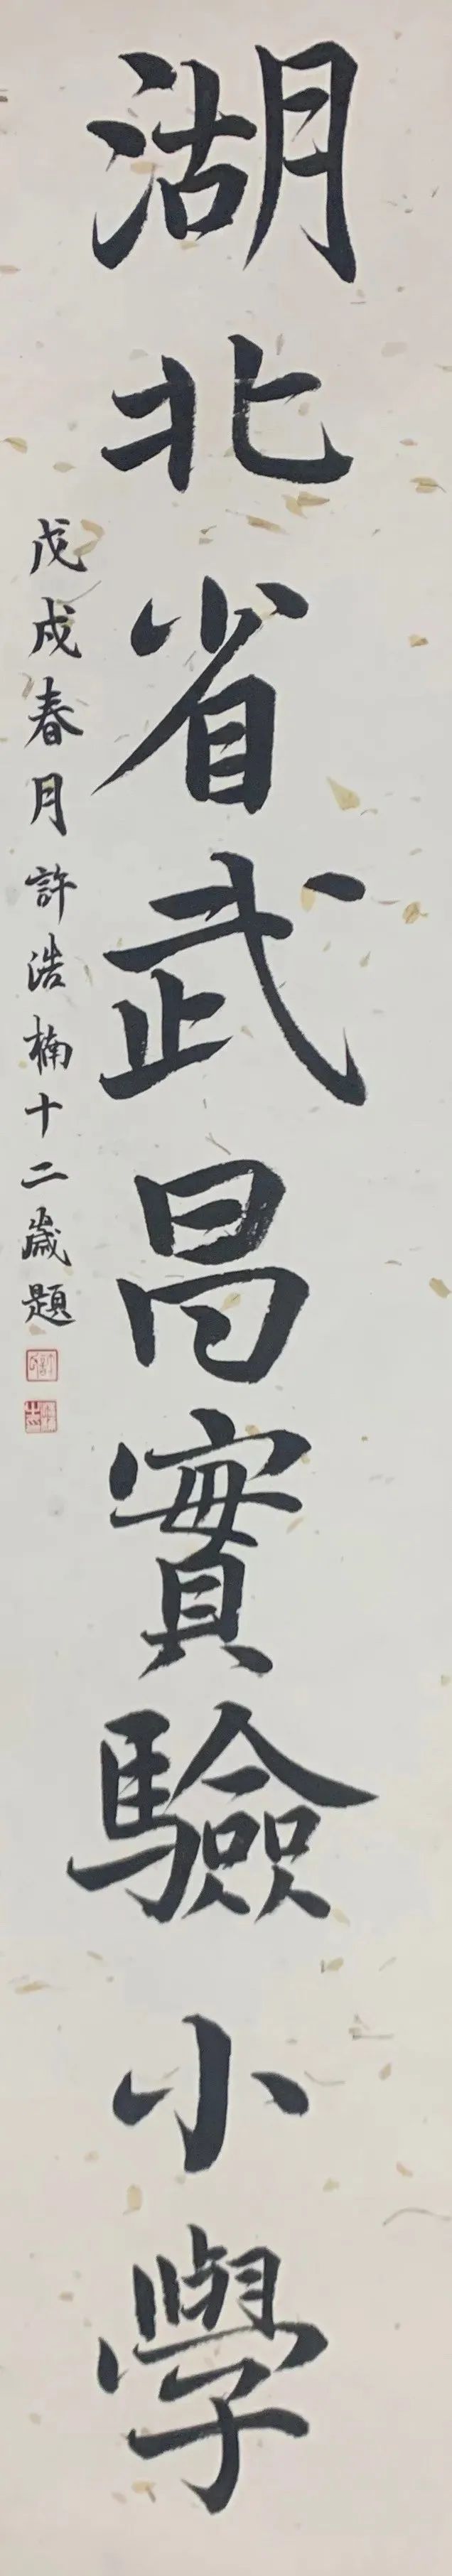 湖北省武昌實驗小學
戊戌春月許浩楠十二歲題